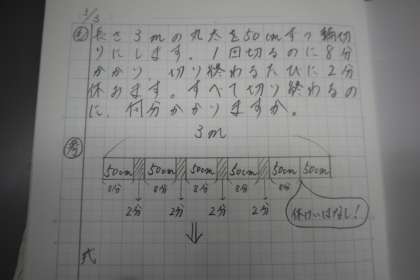 2/3
問 長さ3mの丸太を50cmずつ輪切
りにします。1回切るのに8分
かかり、切り終わるたびに2分
休みます。すべて切り終わるの
に、何分かかりますか。
3m
考
50cm 50cm 50cm 50cm 50cm 50cm
8分 8分 8分 8分 8分
2分 2分 2分 2分
休けいはなし!
式